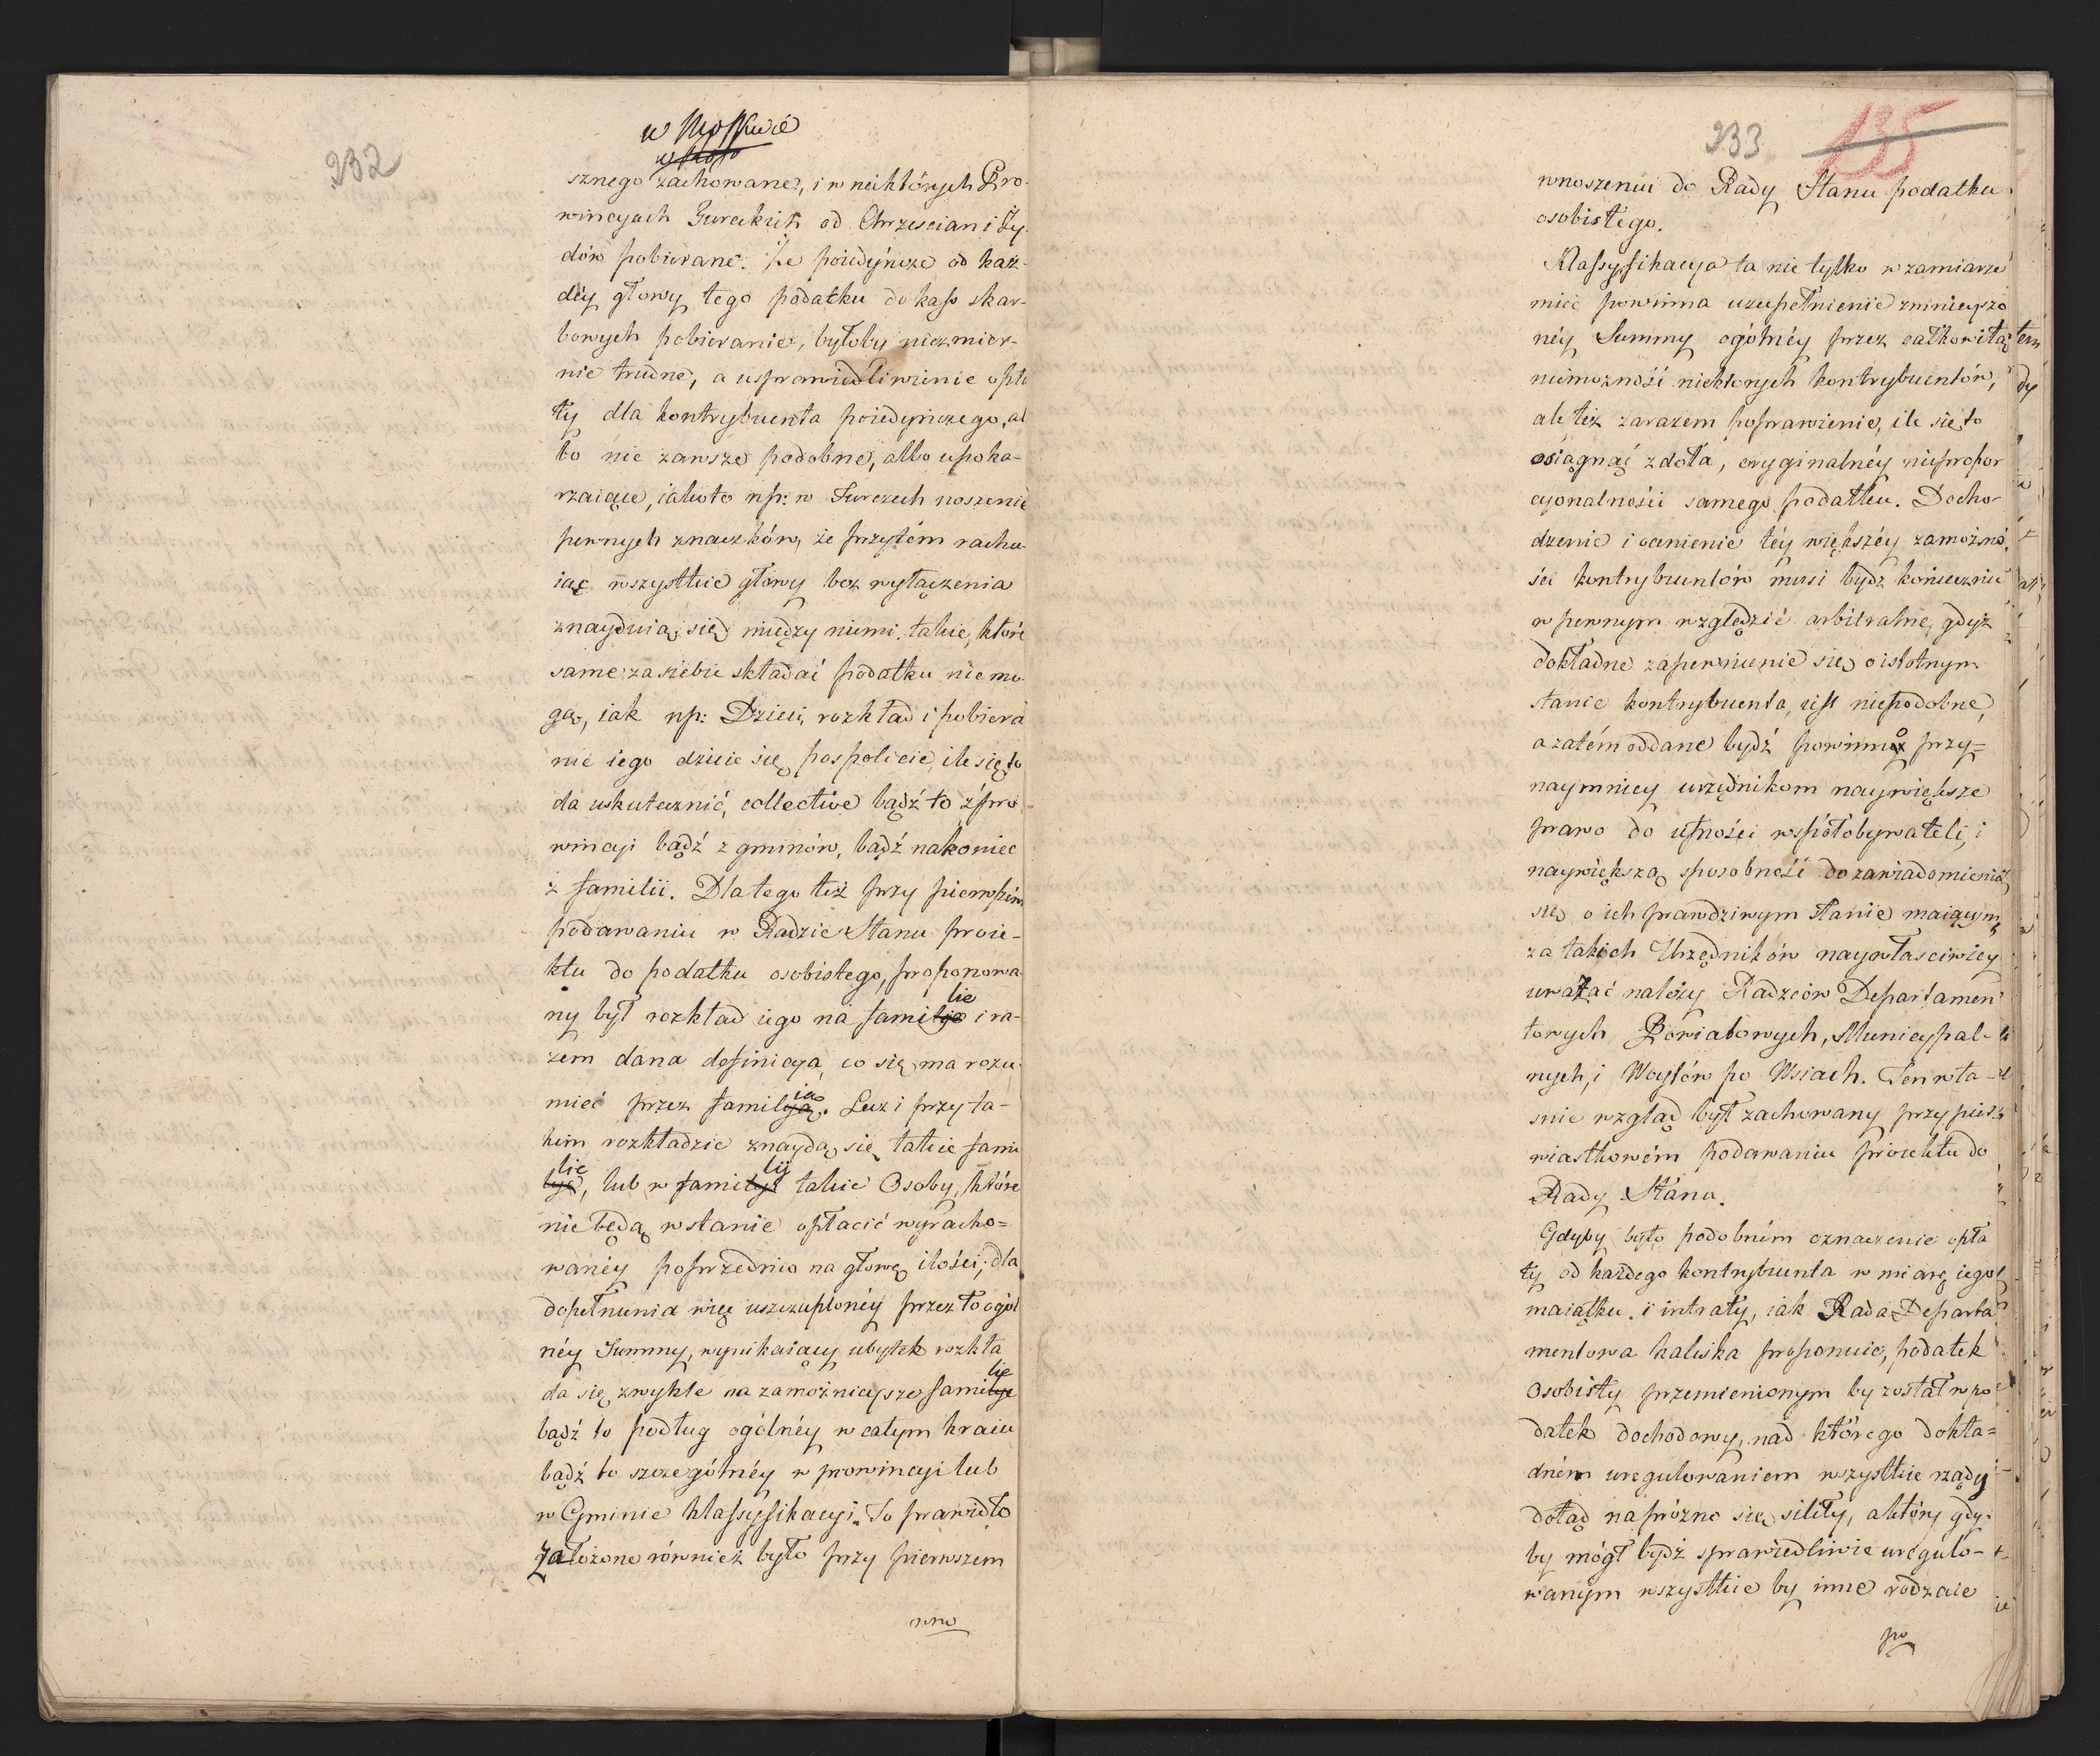 232
w Moskwie
sznego zachowane, i w niektórych Pro-
wincyach Tureckich od Chrzescian i Ży-
dów pobierane. Że poiedyńcze od każ-
déy głowy tego podatku do kass skar-
bowych pobieranie, byłoby niezmier-
nie trudne, a usprawiedliwienie opła
ty dla kontrybuenta poiedyńczego, al
bo nie zawsze podobne, albo upoka-
rzaiące, iakoto np: w Turczech noszenie
pewnych znaczków, że przytém rachu-
iąc wszystkie głowy bez wyłączenia
znayduią się między niemi, takie, które
same za siebie składać podatku niemo-
gą, iak np: Dzieci, rozkład i pobiera
nie iego dzieie się pospolicie, ile się to
da uskutecznić, collective bądź to z pro
wincyi bądź z gminów, bądź nakoniec
z familii. Dla tego też przy pierwszém
podawaniu w Radzie Stanu proie-
ktu do podatku osobistego, proponowa-
ny był rozkład iego na familie i ra-
zem dana definicya, co się ma rozu-
mieć przez familią. Lecz i przy ta-
kim rozkładzie znaydą się takie fami
lie, lub w familij takie Osoby, które
nie będą w stanie opłacić wyracho=
wanéy poprzednio na głowę ilości; dla
dopełnienia więc uszczuploney przez to ogól
néy Summy, wynikaiący ubytek rozkła
da się zwykle na zamożnieysze familie
bądź to podług ogólnéy w całym kraiu
bądź to szczególnéy w prowincyi lub
w Gminie klassyfikacyi. To prawidło
założone również było przy pierwszem
wno
233 135
wnoszeniu do Rady Stanu podatku
osobistego.
Klassyfikacya ta nie tylko w zamiarze
mieć powinna uzupełnienie zmnieyszo
néy Summy ogólnéy przez całkowitą
niemożność niektorych kontrybuentów,
ale też zarazem poprawienie, ile się to
osiągnąć zdoła, oryginalnéy niepropor
cyonalności samego podatku. Docho-
dzenie i ocenienie téy większéy zamożno-
ści kontrybuentów musi bydź koniecznie
w pewnym względzie arbitralne, gdyż
dokładne zapewnienie się o istotnym
stanie kontrybuenta, iest niepodobne,
a zatém oddane bydź powinno przy=
naymniey urzędnikom naywiększe
prawo do ufności współobywateli, i
naywiększą sposobność do zawiadomienia
się o ich prawdziwym stanie maiącym,
za takich Urzędników naywłasciwiey
uważać należy Radzców Departamen
towych Powiatowych, Municypal-
nych, i Woytów po Wsiach. Ten wła-
snie wzgląd był zachowany przy pier-
wiastkowém podawaniu proiektu do
Rady Stanu.
Gdyby było podobném oznaczenie opła
ty od każdego kontrybuenta w miarę iego
maiątku i intraty, iak Rada Departa
mentowa kaliska proponuie, podatek
osobisty przemienionym by został w po
datek dochodowy, nad którego dokła=
dném uregulowaniem wszystkie rządy
dotąd napróżno się siliły, a który gdy-
by mógł bydź sprawiedliwie uregulo-
wanym wszystkie by inne rodzaie
po